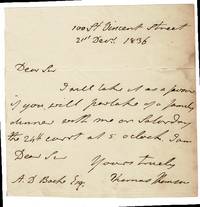 100 St Vincent Street
21st Decr. 1836
Dear Sir
I will take it as a favor
if you will partake of a family
dinner with me on Saturday
the 24th court at 5 oclock. I am
Dear Sir
Yours truly
A D Bache Esq. Thomas Thomson